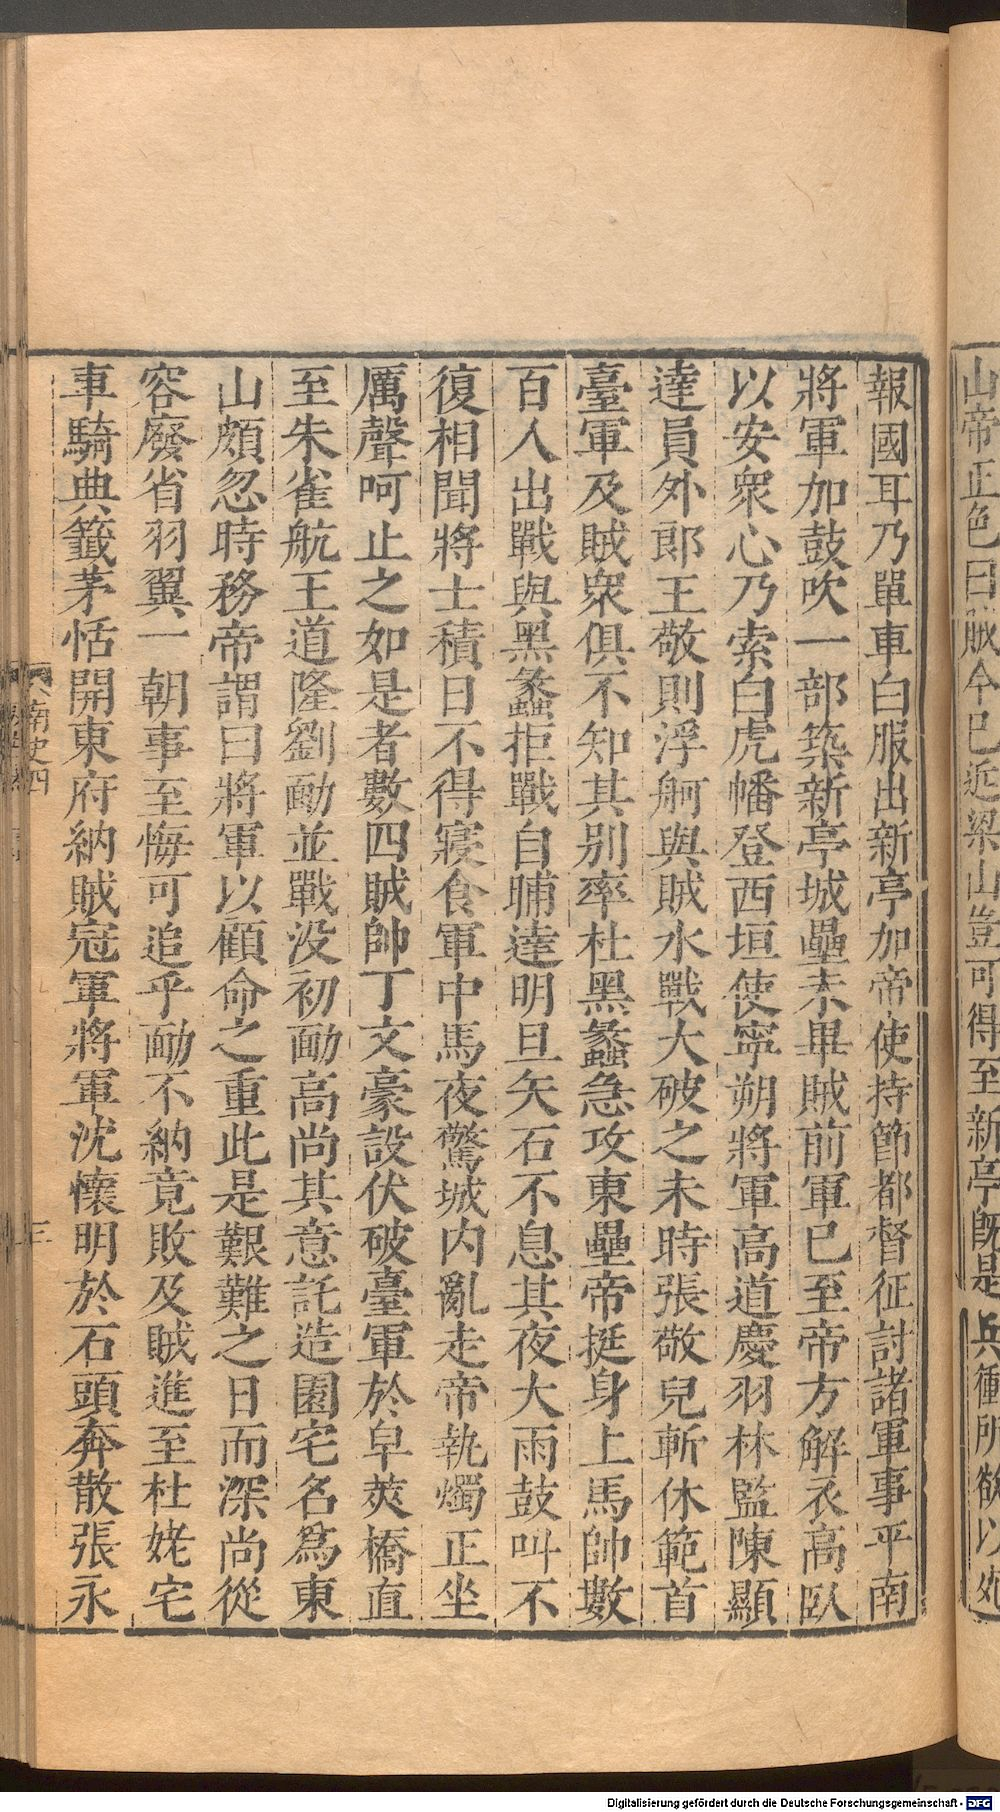 山帝正色曰賊今已近梁山豈可得至新亭既是兵衝所欲以死
報國耳乃單車白服出新亭加帝使持節都督征討諸軍事平南
將軍加鼓吹一部築新亭城壘未畢賊前軍已至帝方解衣高臥
以安衆心乃索白虎幡登西垣使寧朔將軍高道慶羽林監陳顯
達員外郎王敬則浮舸與賊水戰大破之未時張敬兒斬休範首
臺軍及賊衆俱不知其別率杜黑蠡急攻東壘帝挺身上馬帥數
百人出戰與黑蠡拒戰自晡達明旦矢石不息其夜大雨鼓叫不
復相聞將士積日不得寢食軍中馬夜驚城内亂走帝執燭正坐
厲聲呵止之如是者數四賊帥丁文豪設伏破臺軍於皁莢橋直
至朱雀航王道隆劉勔並戰没初勔高尚其意託造園宅名爲東
山頗忽時務帝謂曰將軍以顧命之重此是艱難之日而深尚從
容廢省羽翼一朝事至悔可追乎勔不納竟敗及賊進至杜姥宅
車騎典籤茅恬開東府納賊冠軍將軍沈懷明於石頭奔散張永
南史四
三
Digitalisierung gefördert durch die Deutsche Forschungsgemeinschaft - DFG